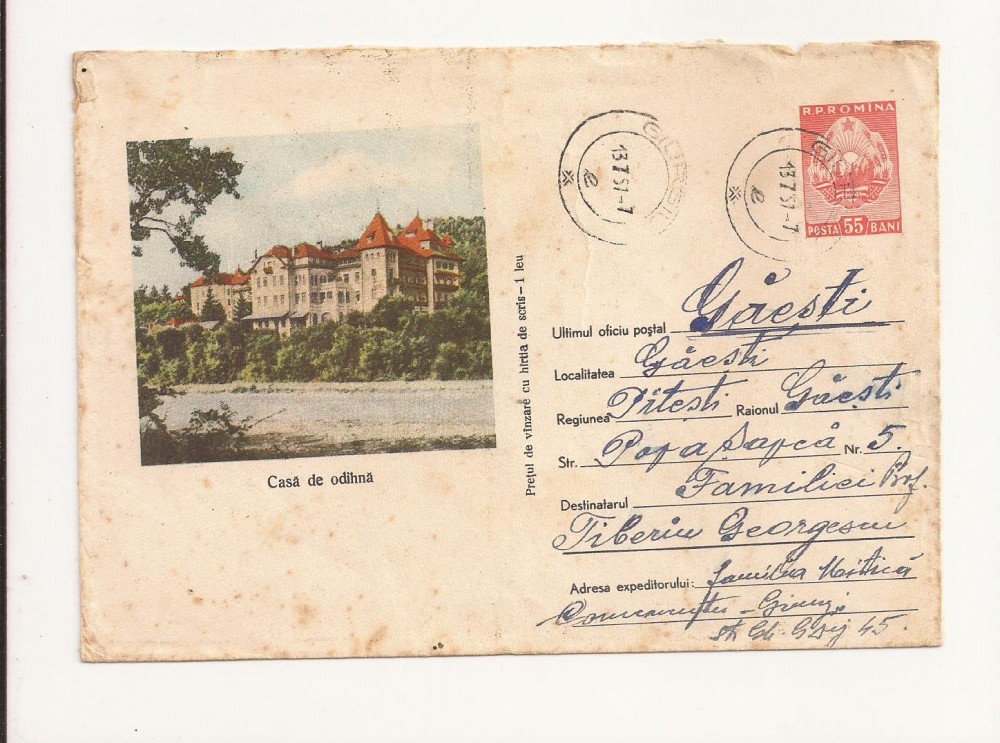 R.P.ROMINA
POSTA 55 BANI
13.7.57-7
13.7.57-7
Casă de odihnă
Prețul de vînzare cu hîrtia de scris-1 leu
Ultimul oficiu poștal Găești
Localitatea Găești
Regiunea Pitești Raionul Găești
Str. Popa Șapcă Nr. 5.
Destinatarul Familiei Prof.
Tiberiu Georgescu
Adresa expeditorului: familia
45.